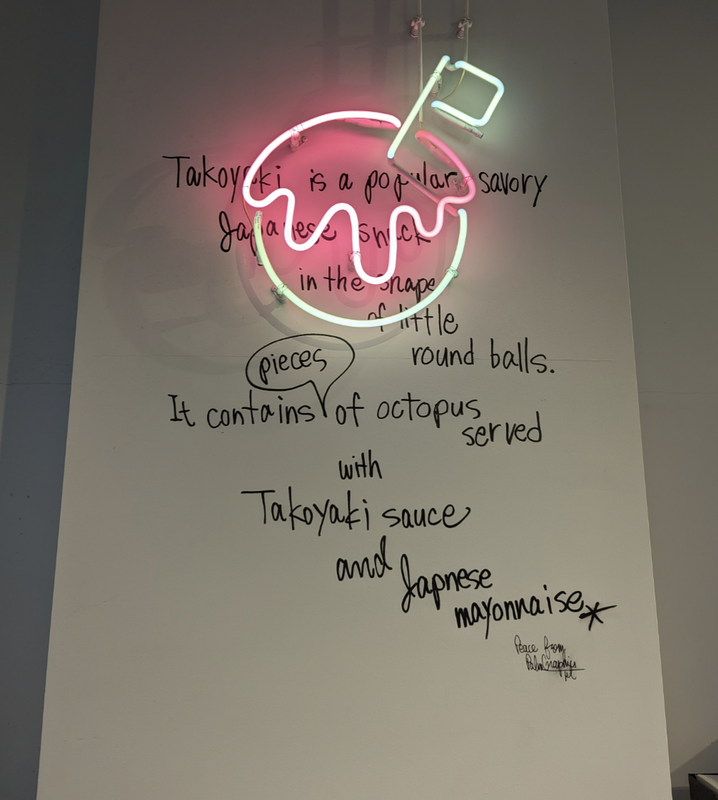 Takoyaki is a popular savory
Japanese snack
in the shape
of little
round balls.
pieces
It contains of octopus
served
with
Takoyaki sauce
and Japnese
mayonnaise*
Peace from